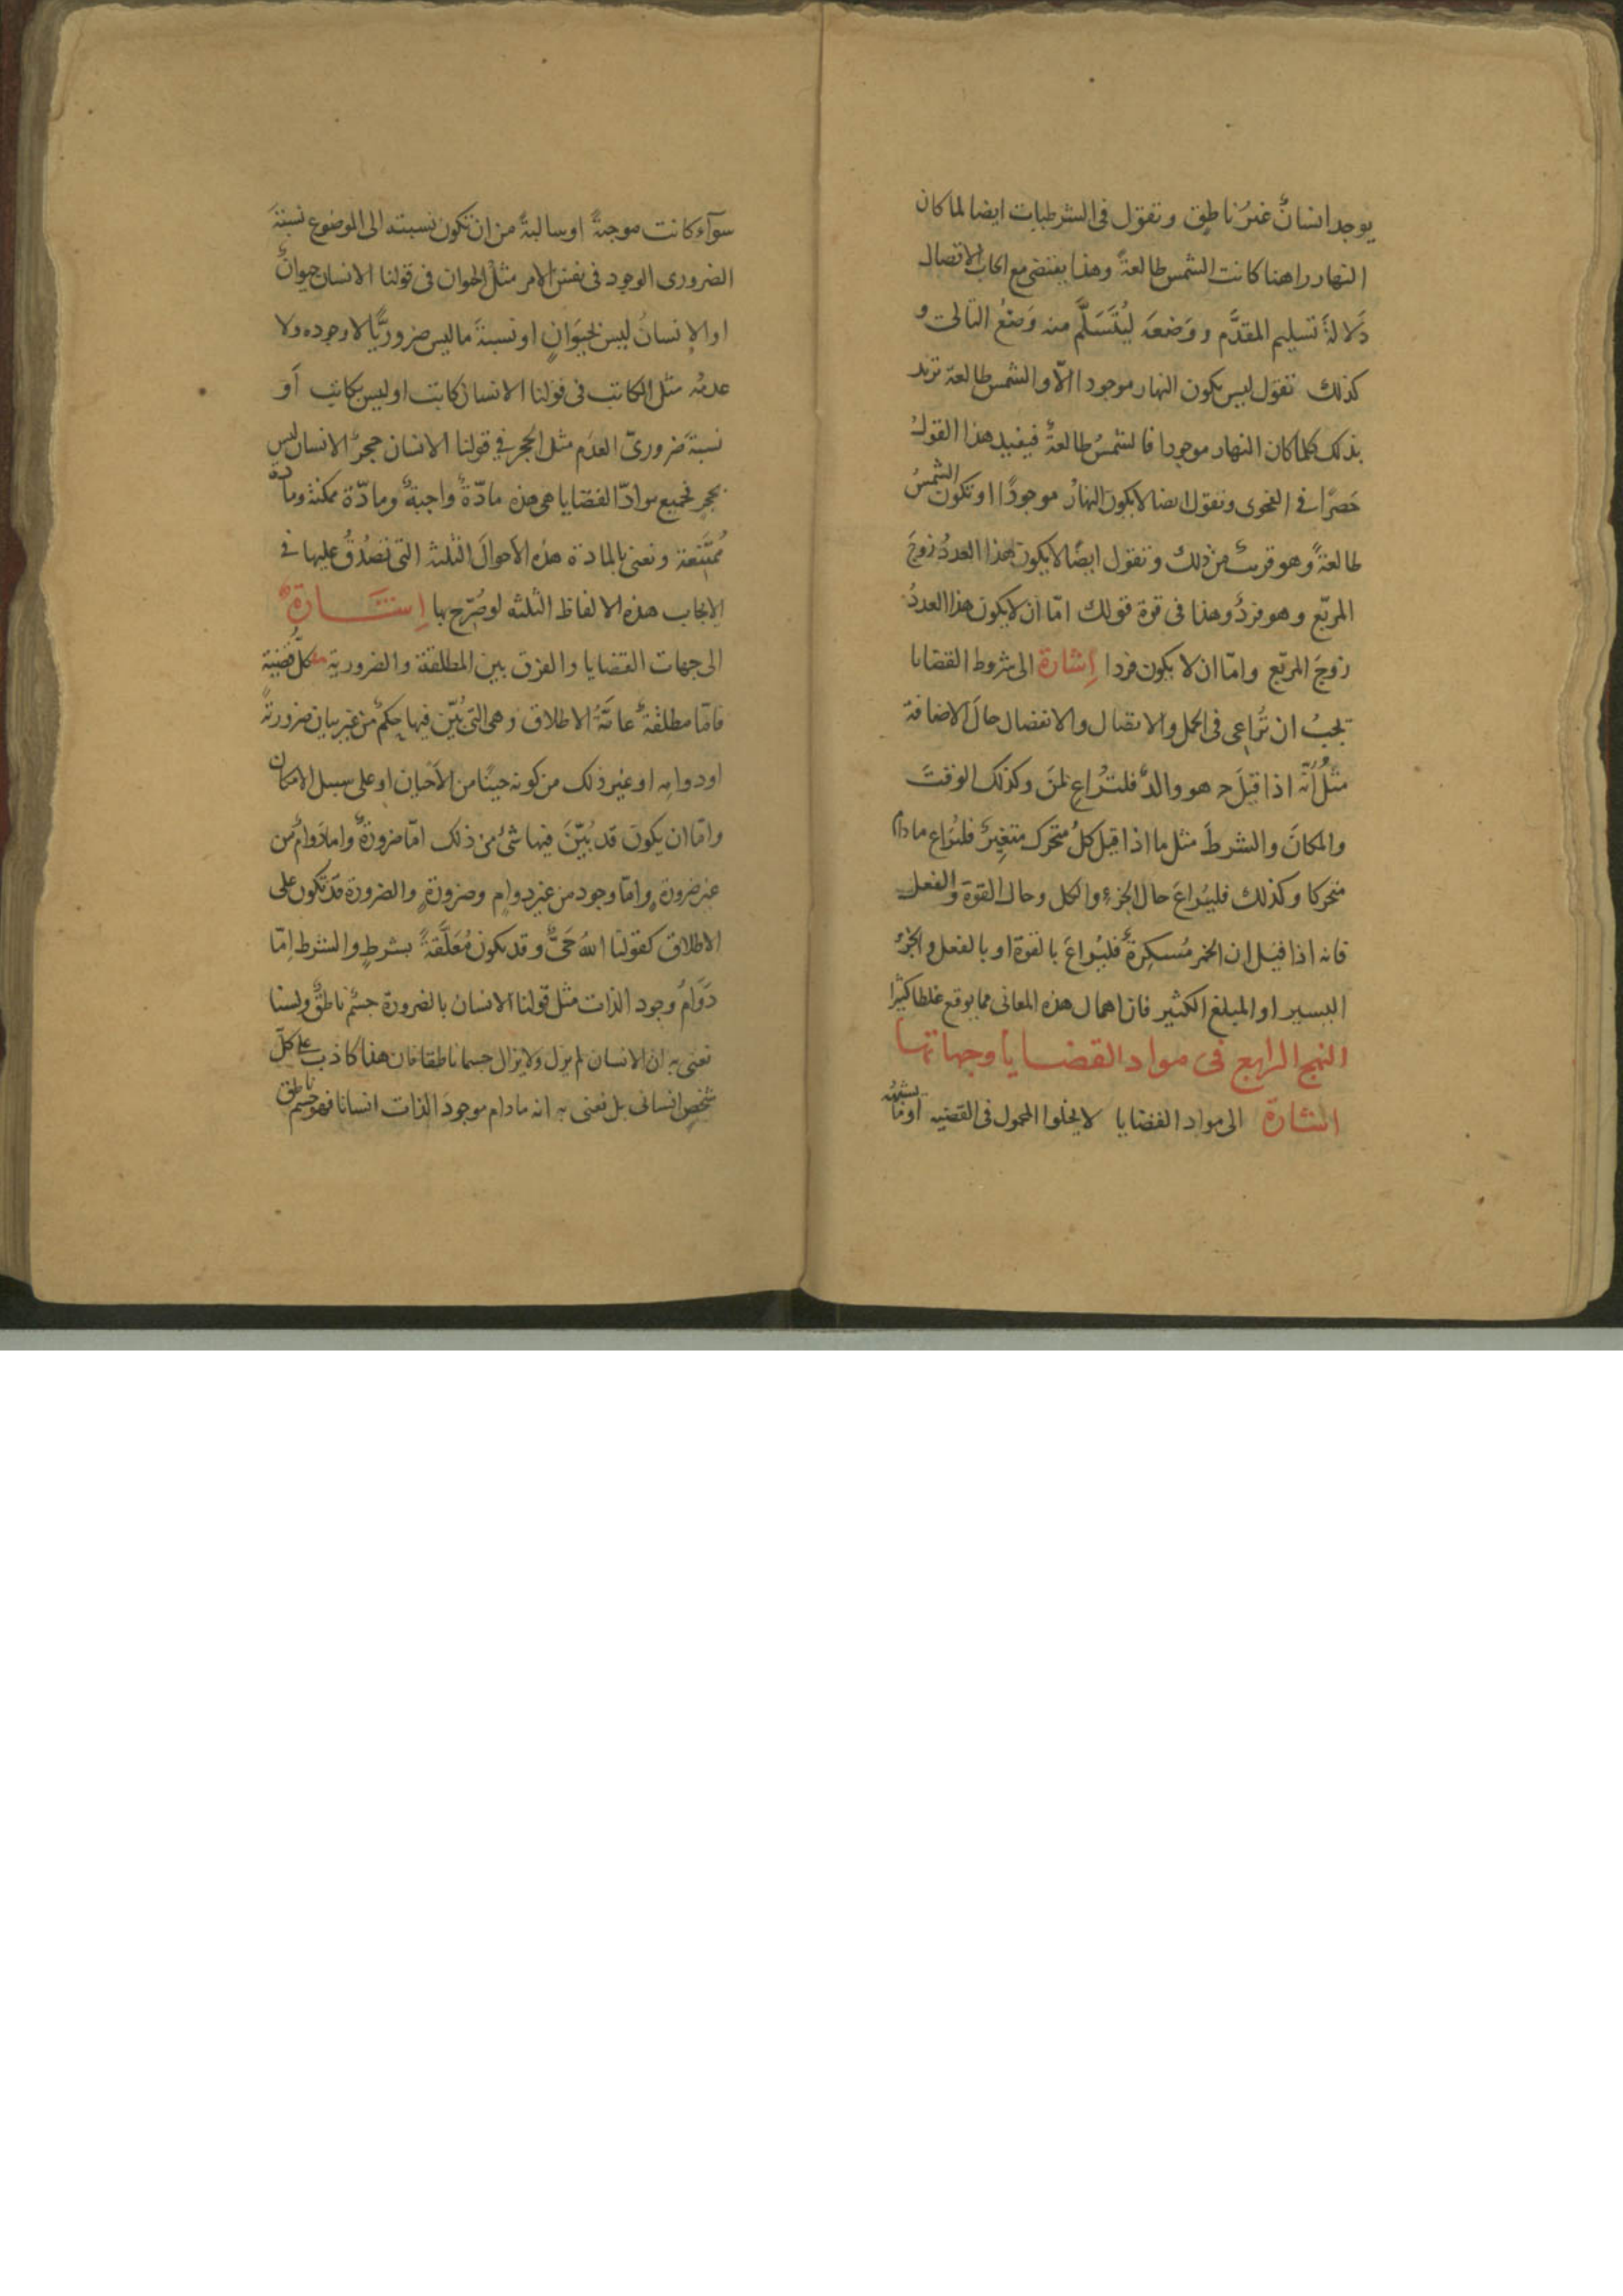 يوجد انسانٌ غيرُ ناطق وتقول فى الشرطيات ايضا لما كان
النهار راهنا كانت الشمس طالعةً وهذا يقتضى مع ايجاب الاتصال
دَلالةَ تسليم المقدَّم ووَضعَه ليُتَسَلَّم منه وَضعُ التالى و
كذلك تقول ليس يكون النهار موجودا الّا والشمس طالعة تريد
بذلك كلما كان النهار موجودا فالشمسُ طالعةٌ فيفيد هذا القولُ
حَصرًا فى الفحوى وتقول ايضا لا يكون النهارُ موجودًا او تكون الشمسُ
طالعةً وهو قريبٌ من ذلك وتقول ايضًا لا يكون هذا العددُ زوجَ
المربّع وهو فردٌ وهذا فى قوة قولك امّا ان لا يكون هذا العددُ
زوجَ المربّع وامّا ان لا يكون فردا إشارة الى شروط القضايا
يجبُ ان تُراعى فى الحمل والاتصال والانفصال حالَ الاضافة
مثلُ أنّه اذا قيلَ ج هو والدٌ فلتُراعِ لمَن وكذلك الوقتَ
والمكانَ والشرطَ مثل ما اذا قيل كلُ متحرك متغيرٌ فلتُراع مادام
متحركا وكذلك فليُراعَ حال الجزءِ والكل وحال القوة والفعل
فانه اذا قيل ان الخمر مُسكِرةٌ فليُراعَ بالقوة او بالفعل والجزءُ
اليسير او المبلغ الكثير فان اهمال هذه المعانى مما يوقع غلطا كثيرا
النهج الرابع فى مواد القضايا وجهاتها
اشارة الى مواد القضايا لا يخلوا المحمول فى القضيه او ما يشبهُه
سوآء كانت موجبةً او سالبةً من ان تكون نسبته الى الموضوع نسبةَ
الضرورى الوجود فى نفس الامر مثلُ الحيوان فى قولنا الانسان حيوانٌ
او الإنسانُ ليس بحَيَوانٍ او نسبةَ ما ليس ضروريًّا لا وجوده ولا
عدمُه مثل الكاتب فى قولنا الانسان كاتب او ليس بكاتب أو
نسبةَ ضرورىّ العدَم مثل الحجر فى قولنا الانسان حجرٌ الانسان ليس
بحجرٍ فجميع موادّ القضايا هى هذه مادّةٌ واجبةٌ ومادّة ممكنة ومادة
مُمتَنِعة ونعنى بالمادة هذه الأحوالَ الثلثة التى تَصدُقُ عليها فى
الإيجاب هذه الالفاظ الثلثه لو صُرّح بها إشارةٌ
الى جهات القضايا والفرق بين المطلقة والضرورية كلُّ قضية
فامّا مطلقةٌ عامّةُ الاطلاق وهى التى بُيّن فيها حكمٌ من غير بيان ضرورتهٍ
او دوامِه او غير ذلك من كونه حينًا من الأحيان او على سبيل الامكان
وامّا ان يكونَ قد بُيّنَ فيها شىءٌ من ذلك امّا ضرورةٌ واما دَوامٌ من
غير ضرورةٍ وامّا وجود من غير دوامٍ وضرورةٍ والضرورة قد تكون على
الاطلاق كقولنا اللهُ حَىٌّ وقد يكون مُعَلَّقةً بشرطٍ والشرط اِمّا
دَوَامُ وجود الذات مثل قولنا الانسان بالضرورة جسمٌ ناطقٌ ولسنا
نعنى به ان الانسان لم يزل ولا يزال جسما ناطقا فان هذا كاذب على كلّ
شخصٍ انسانى بل نعنى به انه مادام موجود الذات انسانا فهو جسم ناطق